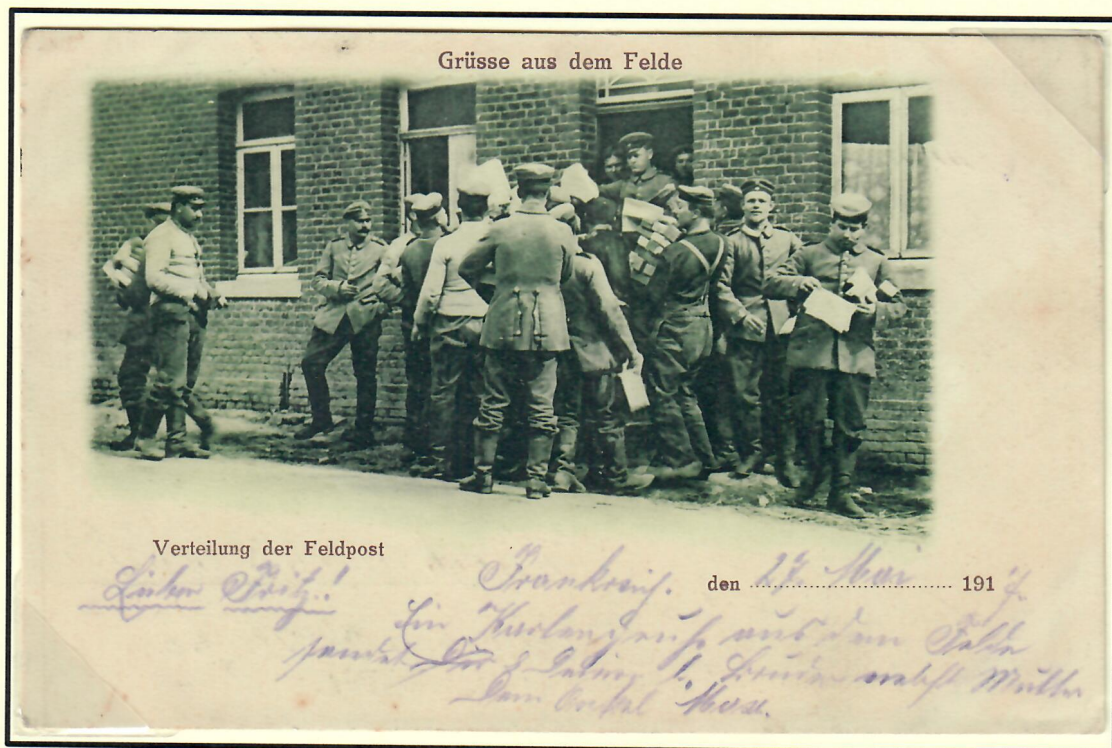 Grüsse aus dem Felde
Verteilung der Feldpost
Frankreich. den 27. Mai 1917.
Lieber Fritz!
Ein Kartengruß aus dem Felde
sendet Dir Bruder nebst Mutter
Dein Onkel Max.